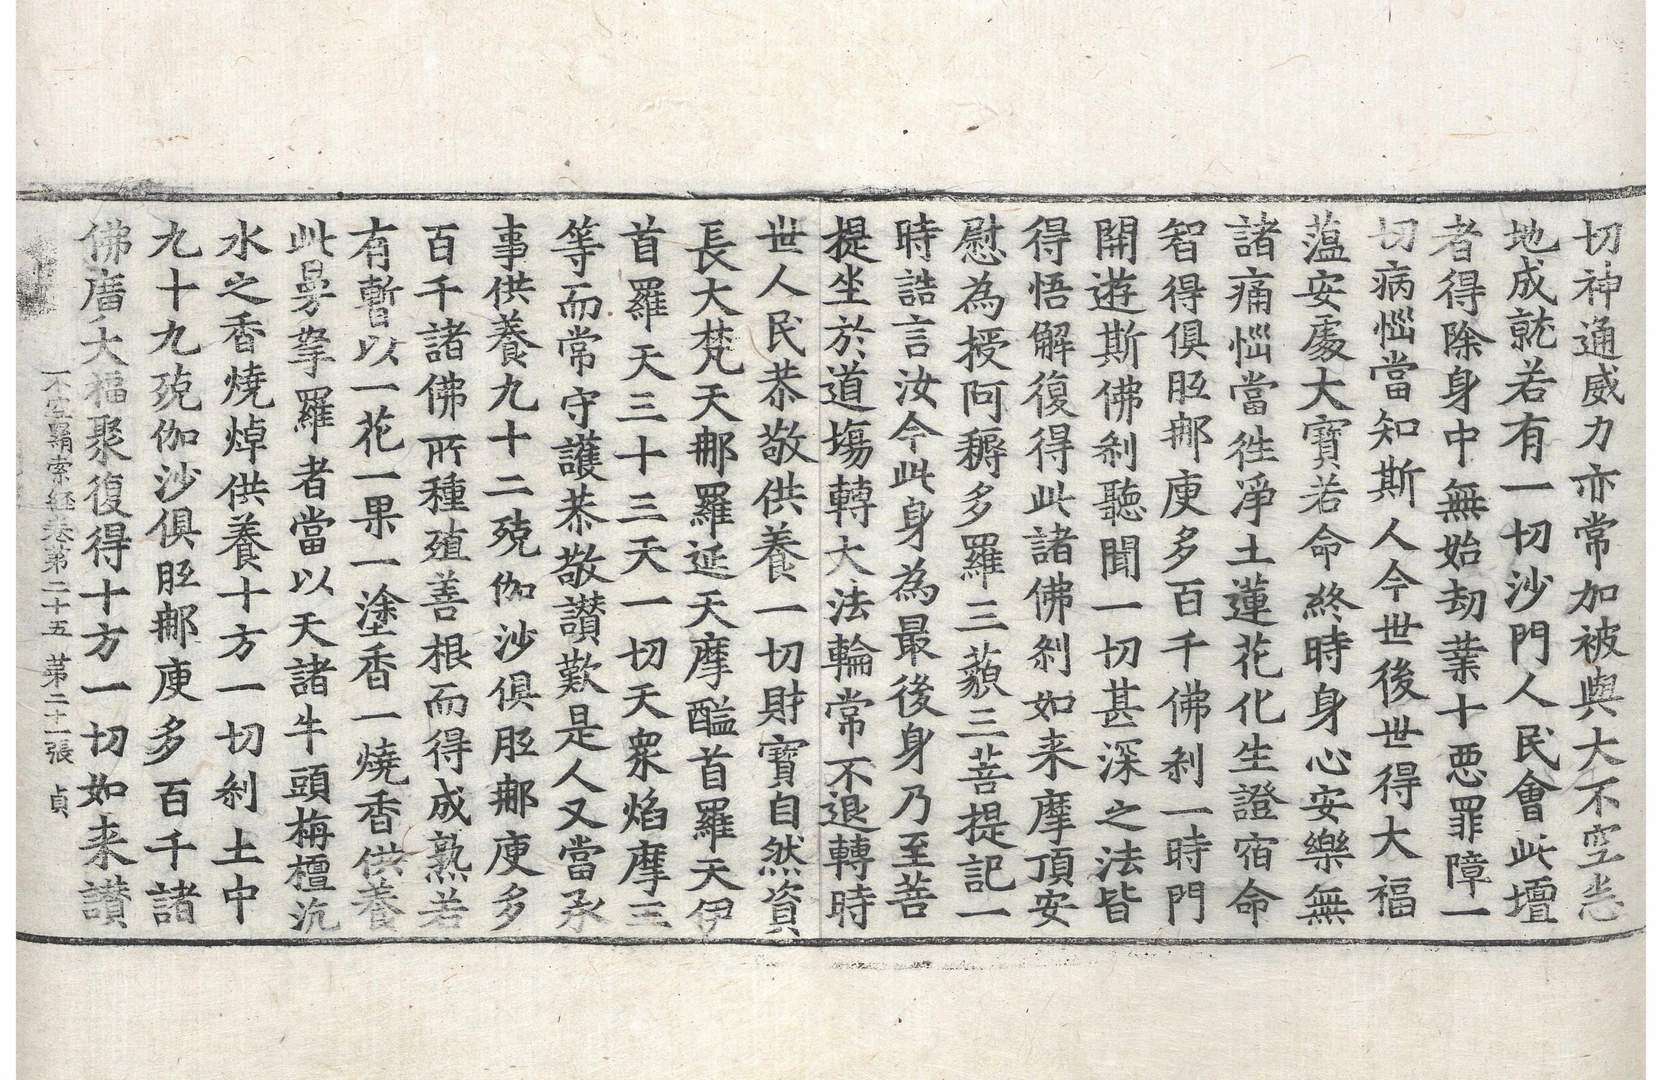 切神通威力亦常加被與大不空悉
地成就若有一切沙門人民會此壇
者得除身中無始劫業十惡罪障一
切病惱當知斯人今世後世得大福
蕰安處大寶若命終時身心安樂無
諸痛惱當徃淨土蓮花化生證宿命
智得俱胝那庾多百千佛剎一時門
開遊斯佛剎聽聞一切甚深之法皆
得悟解復得此諸佛剎如来摩頂安
慰為授阿耨多羅三藐三菩提記一
時誥言汝今此身為最後身乃至菩
提坐於道場轉大法輪常不退轉時
世人民恭敬供養一切財寶自然資
長大梵天那羅延天摩醯首羅天伊
首羅天三十三天一切天衆焰摩王
等而常守護恭敬讚歎是人又當承
事供養九十二殑伽沙俱胝那庾多
百千諸佛所種殖善根而得成熟若
有暫以一花一果一塗香一燒香供養
此曼拏羅者當以天諸牛頭栴檀沉
水之香燒焯供養十方一切剎土中
九十九殑伽沙俱胝那庾多百千諸
佛廣大福聚復得十方一切如来讃
不空羂索經卷第二十五 第二十二張 貞